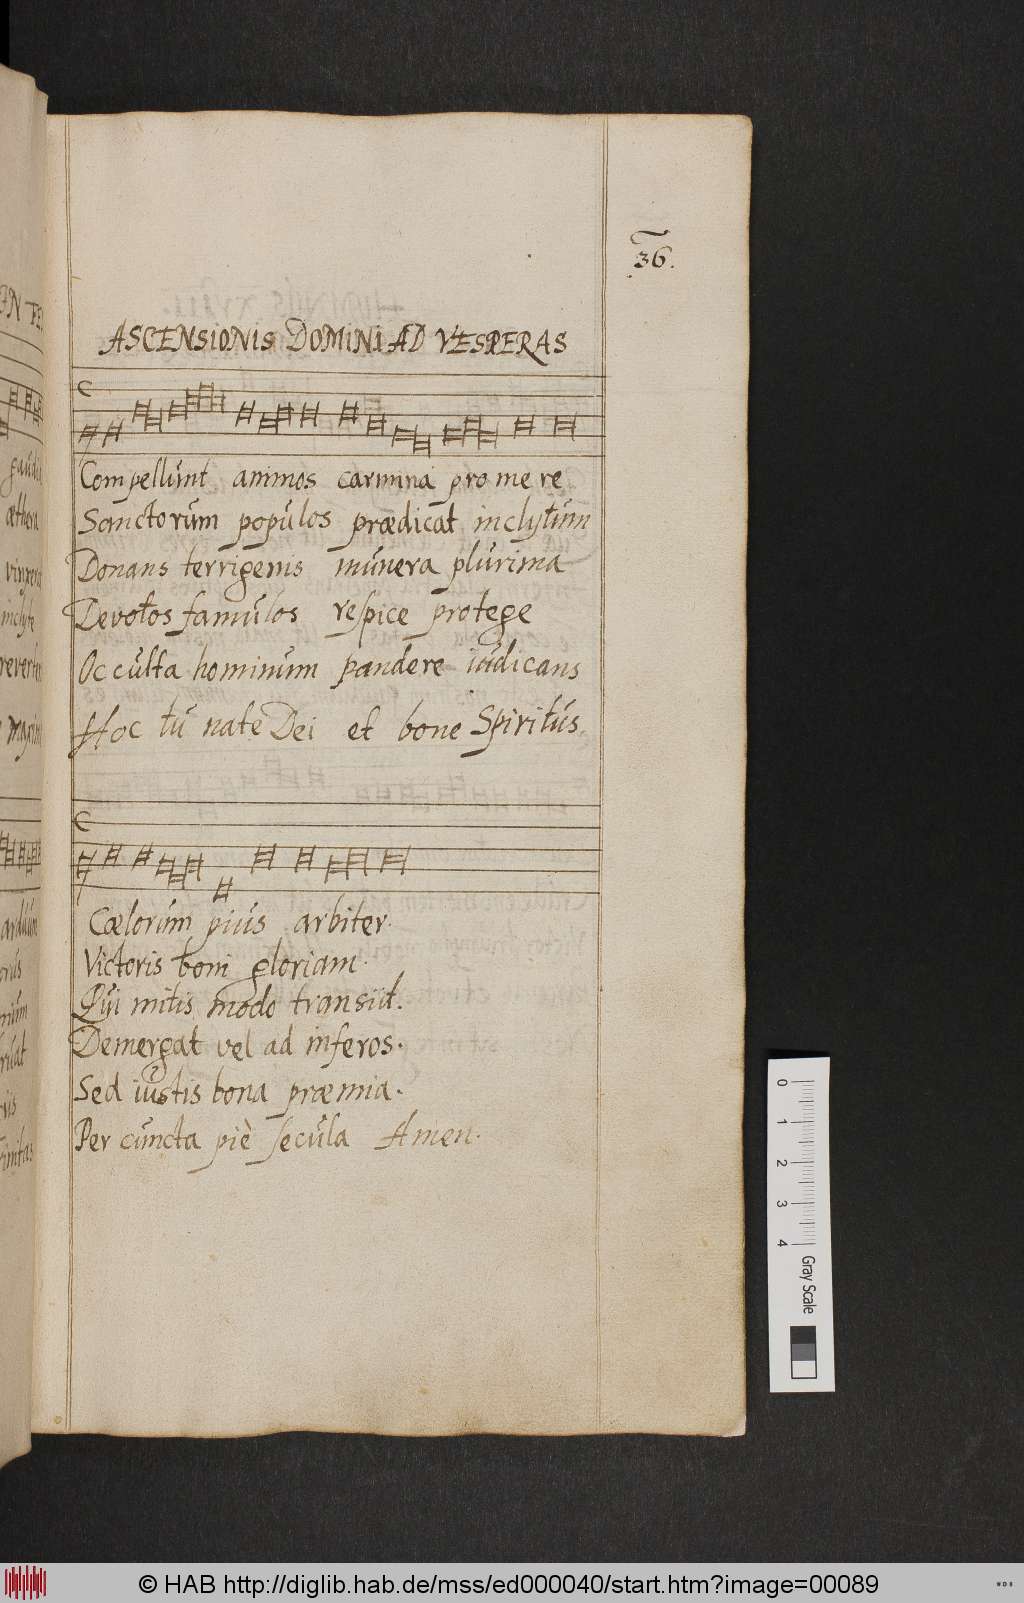 36.
ASCENSIONIS DOMINI AD VESPERAS
Compellunt animos carmina pro me re
Sanctorum populos prædicat inclytum
Donans terrigenis munera plurima
Devotos famulos respice protege
Occulta hominum pandere iudicans
Hoc tu nate Dei et bone Spiritus.
Cælorum pius arbiter.
Victoris boni gloriam.
Qui mitis modo transiit.
Demergat vel ad inferos.
Sed iustis bona præmia.
Per cuncta piè secula Amen.
gaudi
æthera
inclyte
arduum
0 1 2 3 4 Gray Scale
© HAB http://diglib.hab.de/mss/ed000040/start.htm?image=00089